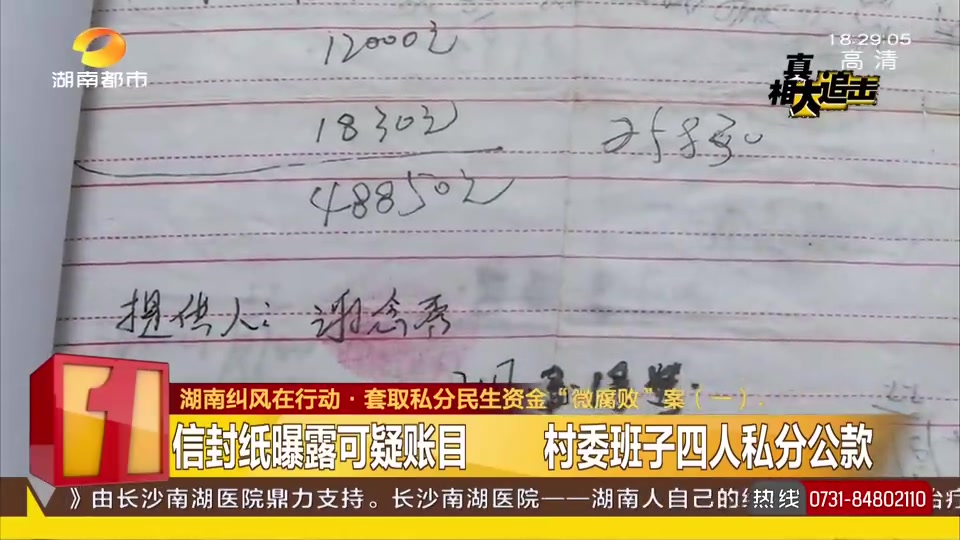 12000元
18:29:05
高清
湖南都市
真相大追击
1830元
48850元
提供人：谢念秀
湖南纠风在行动·套取私分民生资金“微腐败”案（一）
信封纸曝露可疑账目 村委班子四人私分公款
》由长沙南湖医院鼎力支持。长沙南湖医院——湖南人自己的
热线 0731-84802110